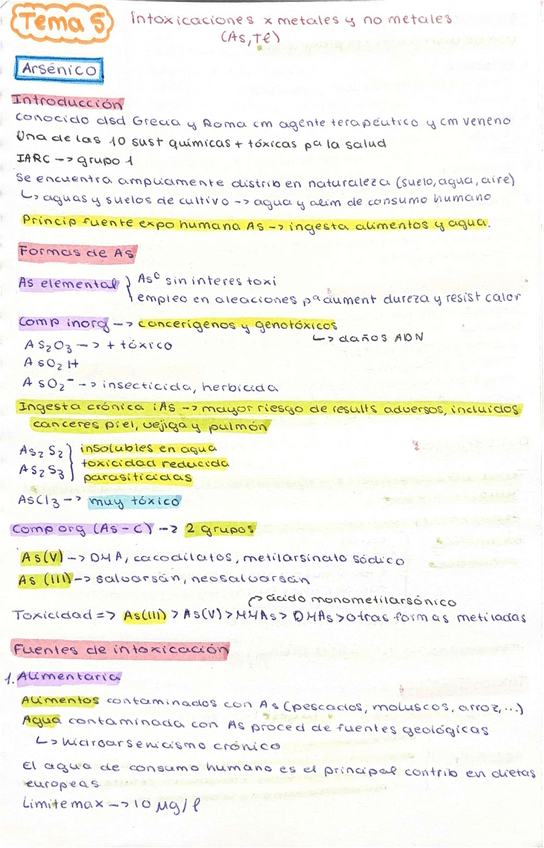 Tema 5
Intoxicaciones x metales y no metales
(As, Tl)
Arsénico
Introducción
Conocido dsd Grecia y Roma cm agente terapéutico y cm veneno
Una de las 10 sust químicas + tóxicas pa la salud
IARC -> grupo 1
Se encuentra ampliamente distrib en naturaleza (suelo, agua, aire)
↳ aguas y suelos de cultivo -> agua y alim de consumo humano
Princip fuente expo humana As -> ingesta alimentos y agua.
Formas de As
As elemental } As⁰ sin interes toxi
empleo en aleaciones pª aument dureza y resist calor
Comp inorg -> cancerígenos y genotóxicos
↳ daños ADN
As₂O₃ -> + tóxico
AsO₂H
AsO₂⁻ -> insecticida, herbicida
Ingesta crónica iAs -> mayor riesgo de results adversos, incluidos
canceres piel, vejiga y pulmón
As₂S₂ } insolubles en agua
toxicidad reducida
As₂S₃ parasiticidas
AsCl₃ -> muy tóxico
Comp org (As-C) -> 2 grupos
As(V) -> DMA, cacodilatos, metilarsinato sódico
As (III) -> salvarsán, neosalvarsán
↱ ácido monometilarsónico
Toxicidad => As(III) > As(V) > MMAs > DMAs > otras formas metiladas
Fuentes de intoxicación
1. Alimentaria
Alimentos contaminados con As (pescados, moluscos, arroz,...)
Agua contaminada con As proced de fuentes geológicas
↳ hidroarsenicismo crónico
El agua de consumo humano es el principal contrib en dietas
europeas
Limite max -> 10 µg/l